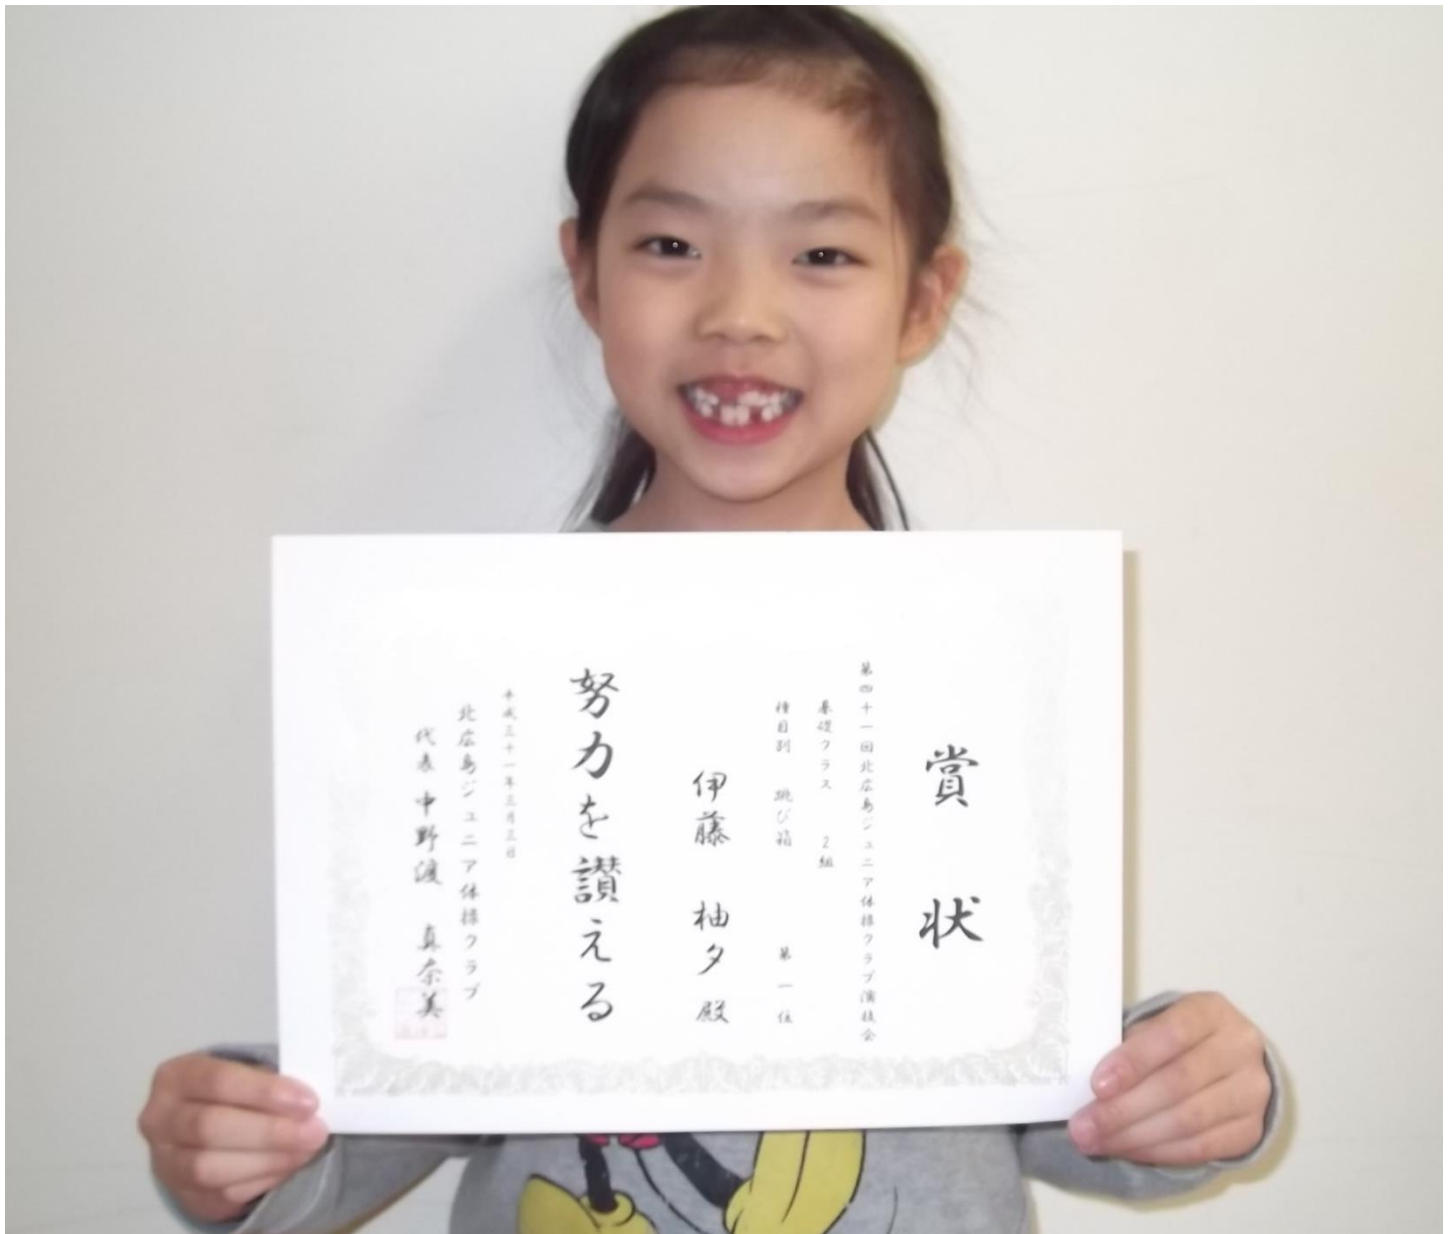 賞状
第四十一回北広島ジュニア体操クラブ演技会
基礎クラス 2組
種目別 跳び箱 第一位
伊藤 柚夕 殿
努力を讃える
平成三十一年三月三日
北広島ジュニア体操クラブ
代表 中野渡 真奈美